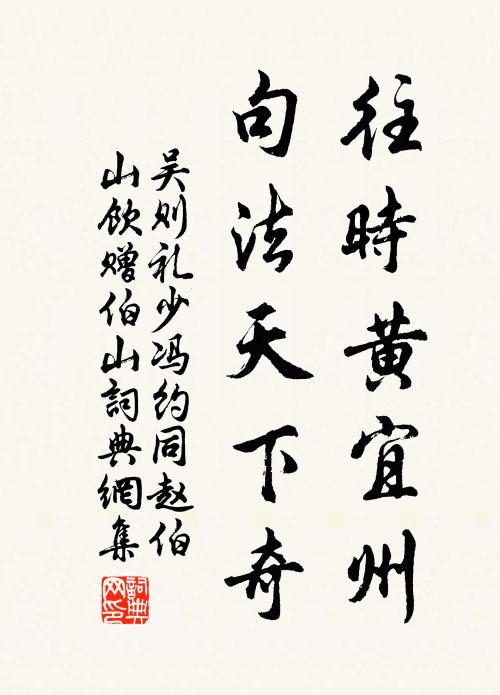 往時黄宜州
句法天下奇
吴则礼少冯约同赵伯
山飲赠伯山詞典網集
詞典網印